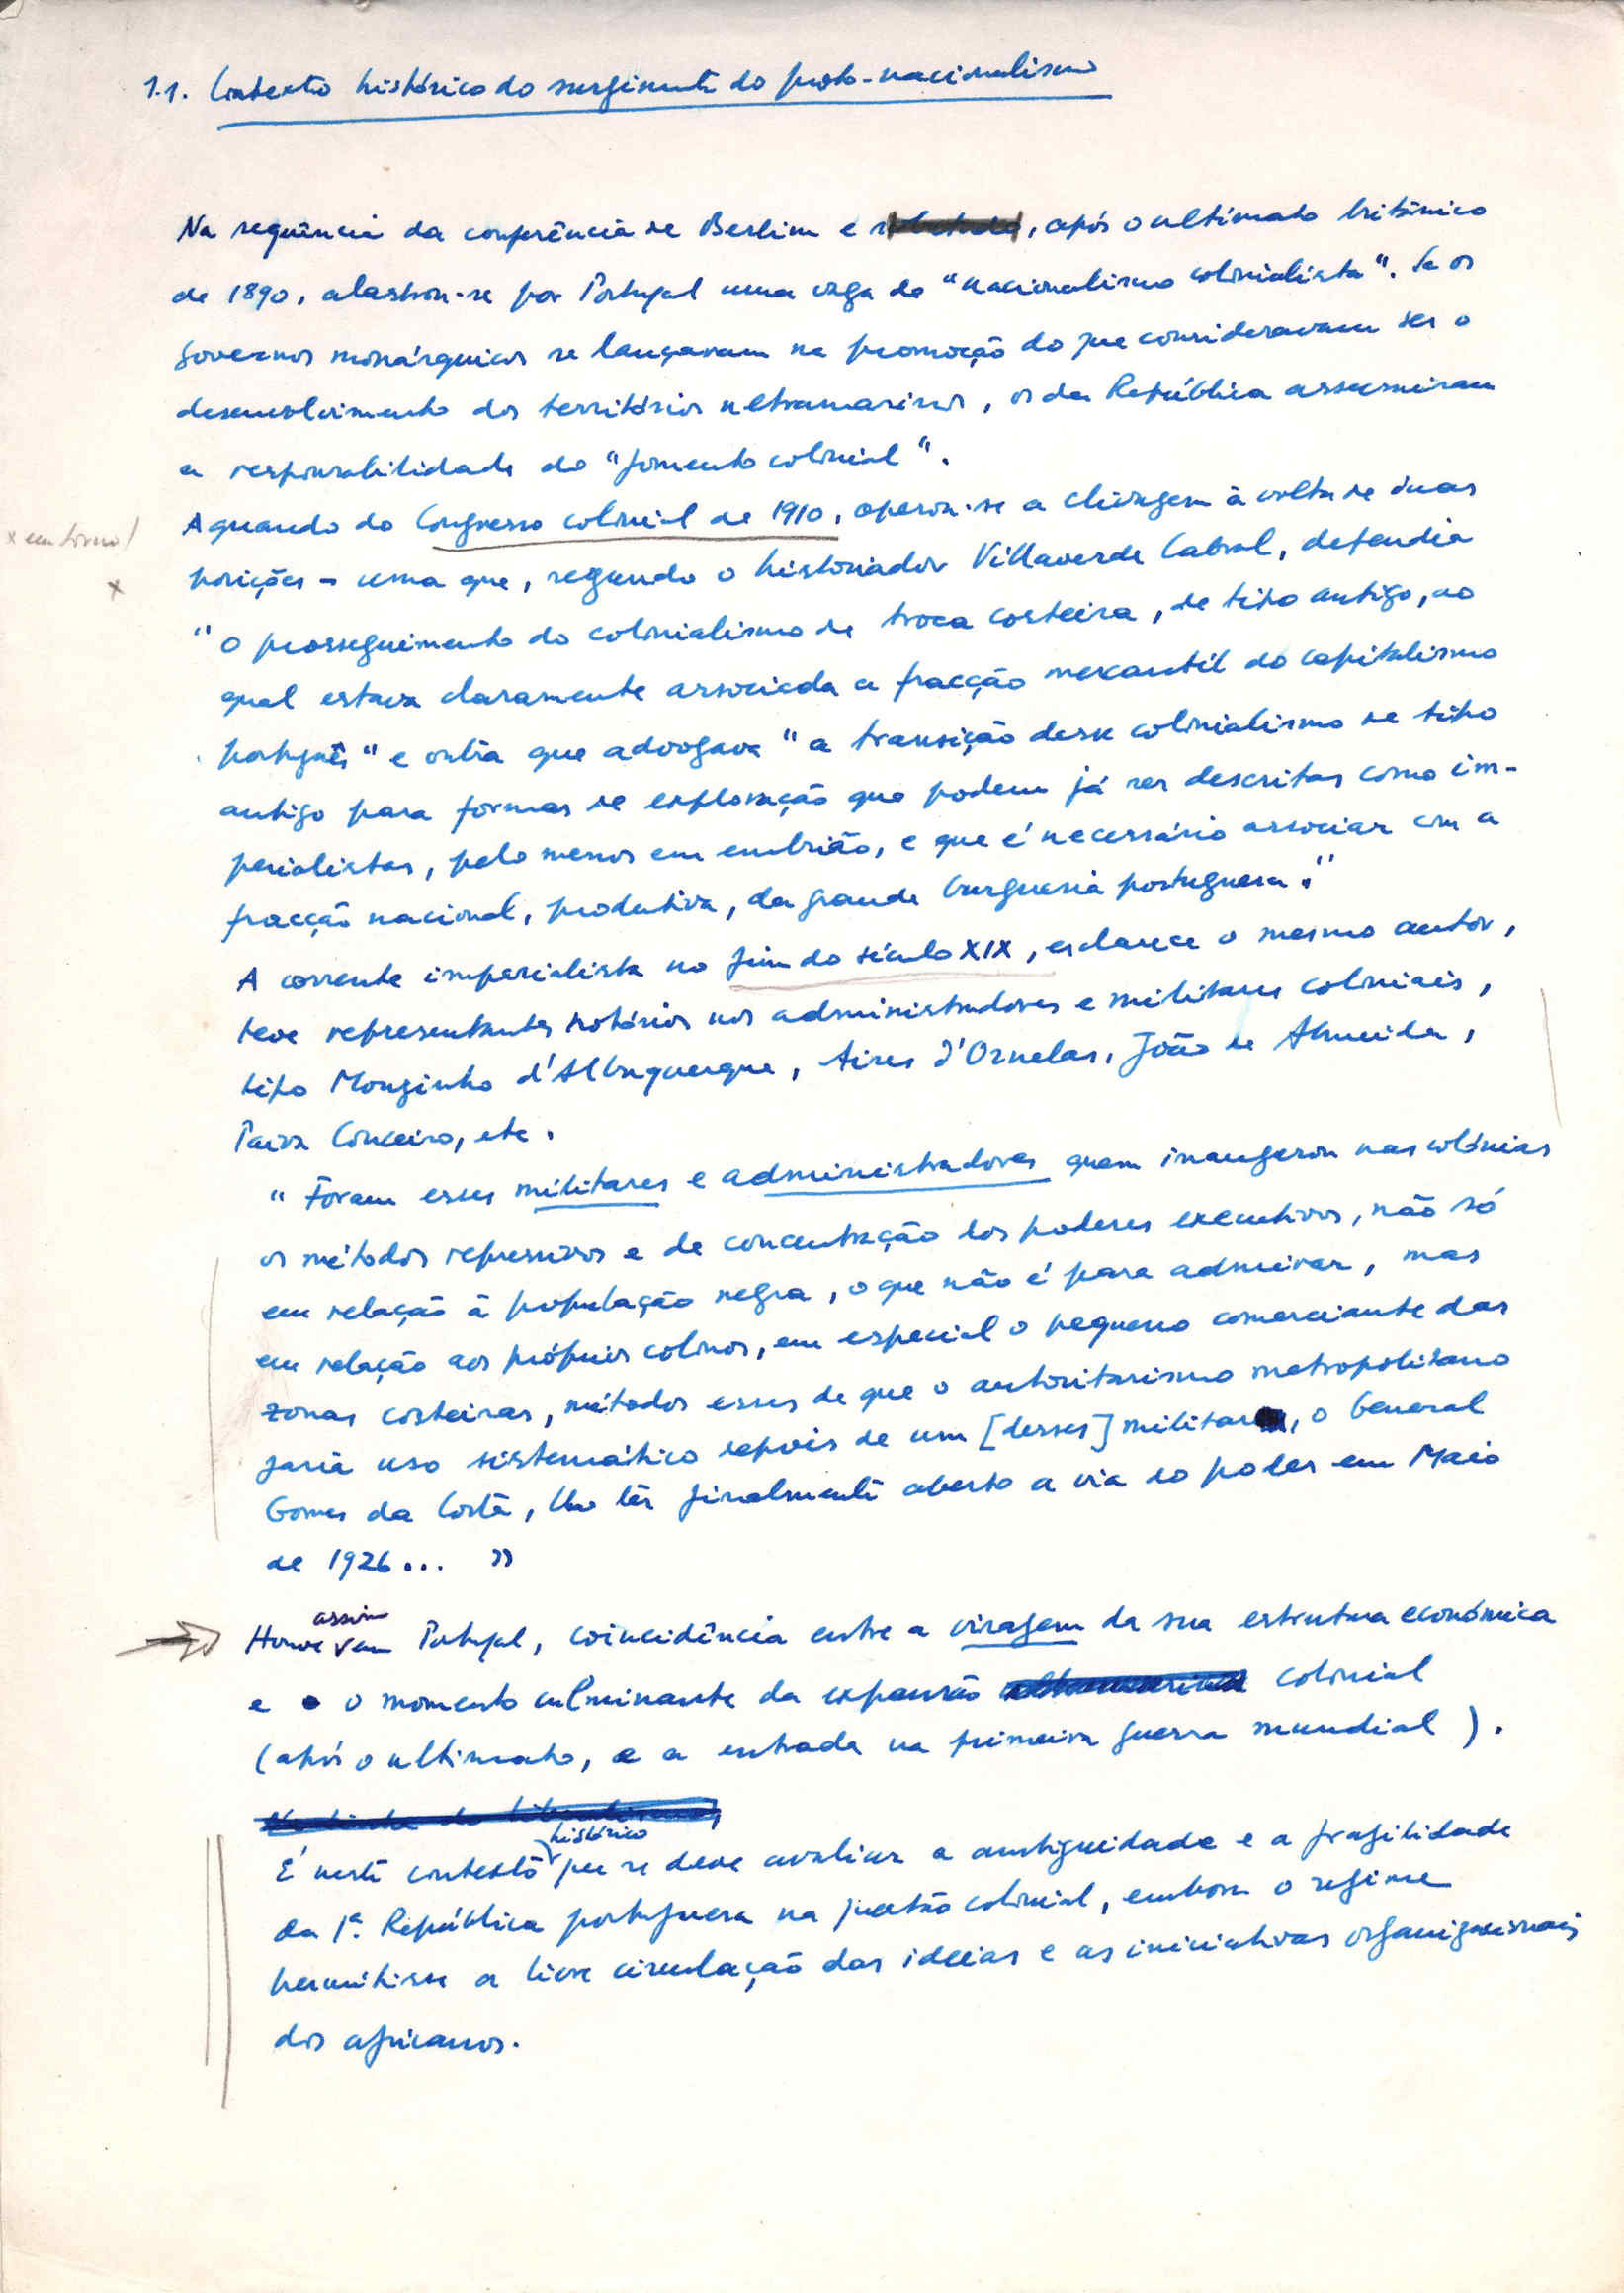 1.1. Contexto histórico do surgimento do proto-nacionalismo
Na sequência da conferência de Berlim e , após o ultimato britânico
de 1890, alastrou-se por Portugal uma vaga de "nacionalismo colonialista". Se os
governos monárquicos se lançavam na promoção do que consideravam ser o
desenvolvimento dos territórios ultramarinos, os da República assumiram
a responsabilidade do "fomento colonial".
Aquando do Congresso colonial de 1910, operou-se a clivagem à volta de duas
x em torno/
x
posições - uma que, segundo o historiador Villaverde Cabral, defendia
"o prosseguimento do colonialismo de troca costeira, de tipo antigo, ao
qual estava claramente associada a fracção mercantil do capitalismo
português" e outra que advogava "a transição desse colonialismo de tipo
antigo para formas de exploração que podem já ser descritas como im-
perialistas, pelo menos em embrião, e que é necessário associar com a
fracção nacional, produtiva, da grande burguesia portuguesa."
A corrente imperialista no fim do século XIX, esclarece o mesmo autor,
teve representantes notórios nos administradores e militares coloniais,
tipo Mouzinho d'Albuquerque, Aires d'Ornelas, João de Almeida,
Paiva Couceiro, etc.
"Foram esses militares e administradores quem inaugurou nas colónias
os métodos repressivos e de concentração dos poderes executivos, não só
em relação à população negra, o que não é para admirar, mas
em relação aos próprios colonos, em especial o pequeno comerciante das
zonas costeiras, métodos esses de que o autoritarismo metropolitano
faria uso sistemático depois de um [desses] militares, o General
Gomes da Costa, lhe ter finalmente aberto a via do poder em Maio
de 1926... "
assim
Houve em Portugal, coincidência entre a viragem da sua estrutura económica
e o momento culminante da expansão colonial
(após o ultimato, e a entrada na primeira guerra mundial).
histórico
É neste contexto que se deve avaliar a ambiguidade e a fragilidade
da 1ª. República portuguesa na questão colonial, embora o regime
permitisse a livre circulação das ideias e as iniciativas organizacionais
dos africanos.